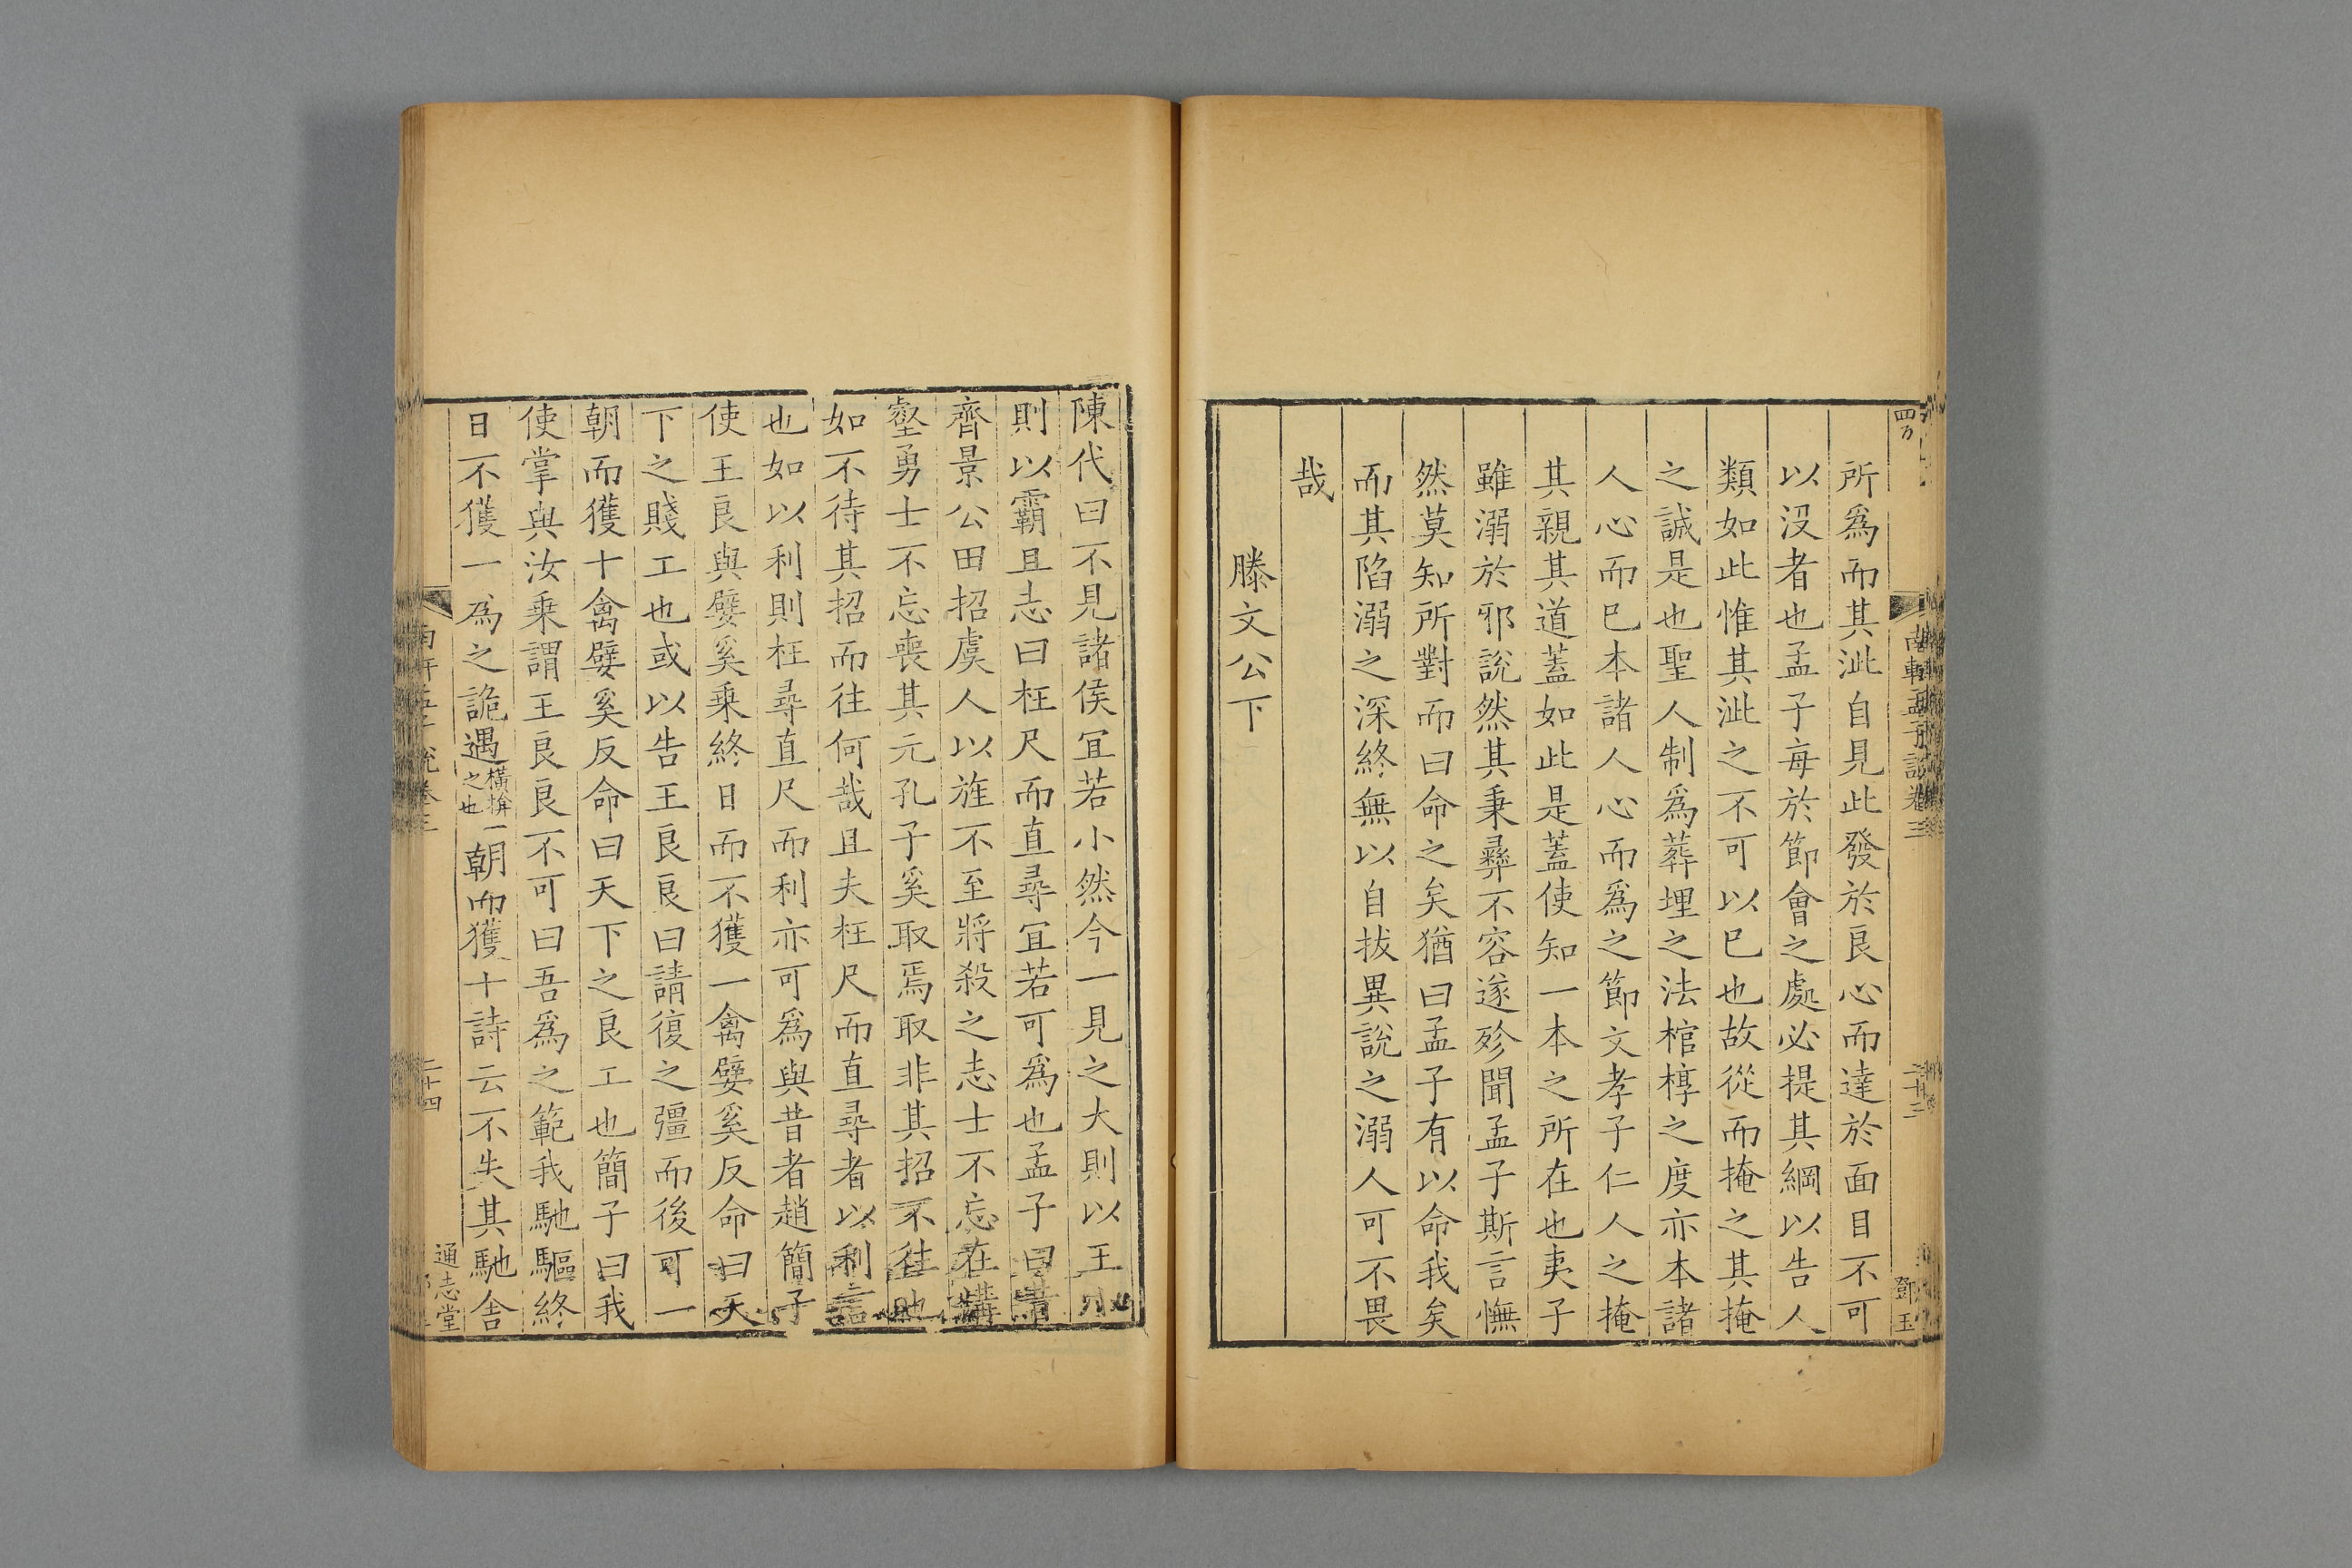 南軒孟子說卷三
二十三
鄧玉
所爲而其泚自見此發於良心而達於面目不可
以沒者也孟子每於節會之處必提其綱以告人
類如此惟其泚之不可以已也故從而掩之其掩
之誠是也聖人制爲葬埋之法棺椁之度亦本諸
人心而已本諸人心而爲之節文孝子仁人之掩
其親其道蓋如此是蓋使知一本之所在也夷子
雖溺於邪說然其秉彞不容遂殄聞孟子斯言憮
然莫知所對而曰命之矣猶曰孟子有以命我矣
而其陷溺之深終無以自拔異說之溺人可不畏
哉
滕文公下
陳代曰不見諸侯宜若小然今一見之大則以王小
則以霸且志曰枉尺而直尋宜若可爲也孟子曰昔
齊景公田招虞人以旌不至將殺之志士不忘在溝
壑勇士不忘喪其元孔子奚取焉取非其招不往也
如不待其招而往何哉且夫枉尺而直尋者以利言
也如以利則枉尋直尺而利亦可爲與昔者趙簡子
使王良與嬖奚乘終日而不獲一禽嬖奚反命曰天
下之賤工也或以告王良良曰請復之彊而後可一
朝而獲十禽嬖奚反命曰天下之良工也簡子曰我
使掌與汝乘謂王良良不可曰吾爲之範我馳驅終
日不獲一爲之詭遇橫揜之也一朝而獲十詩云不失其馳舍
南軒孟子說卷三
二十四
通志堂